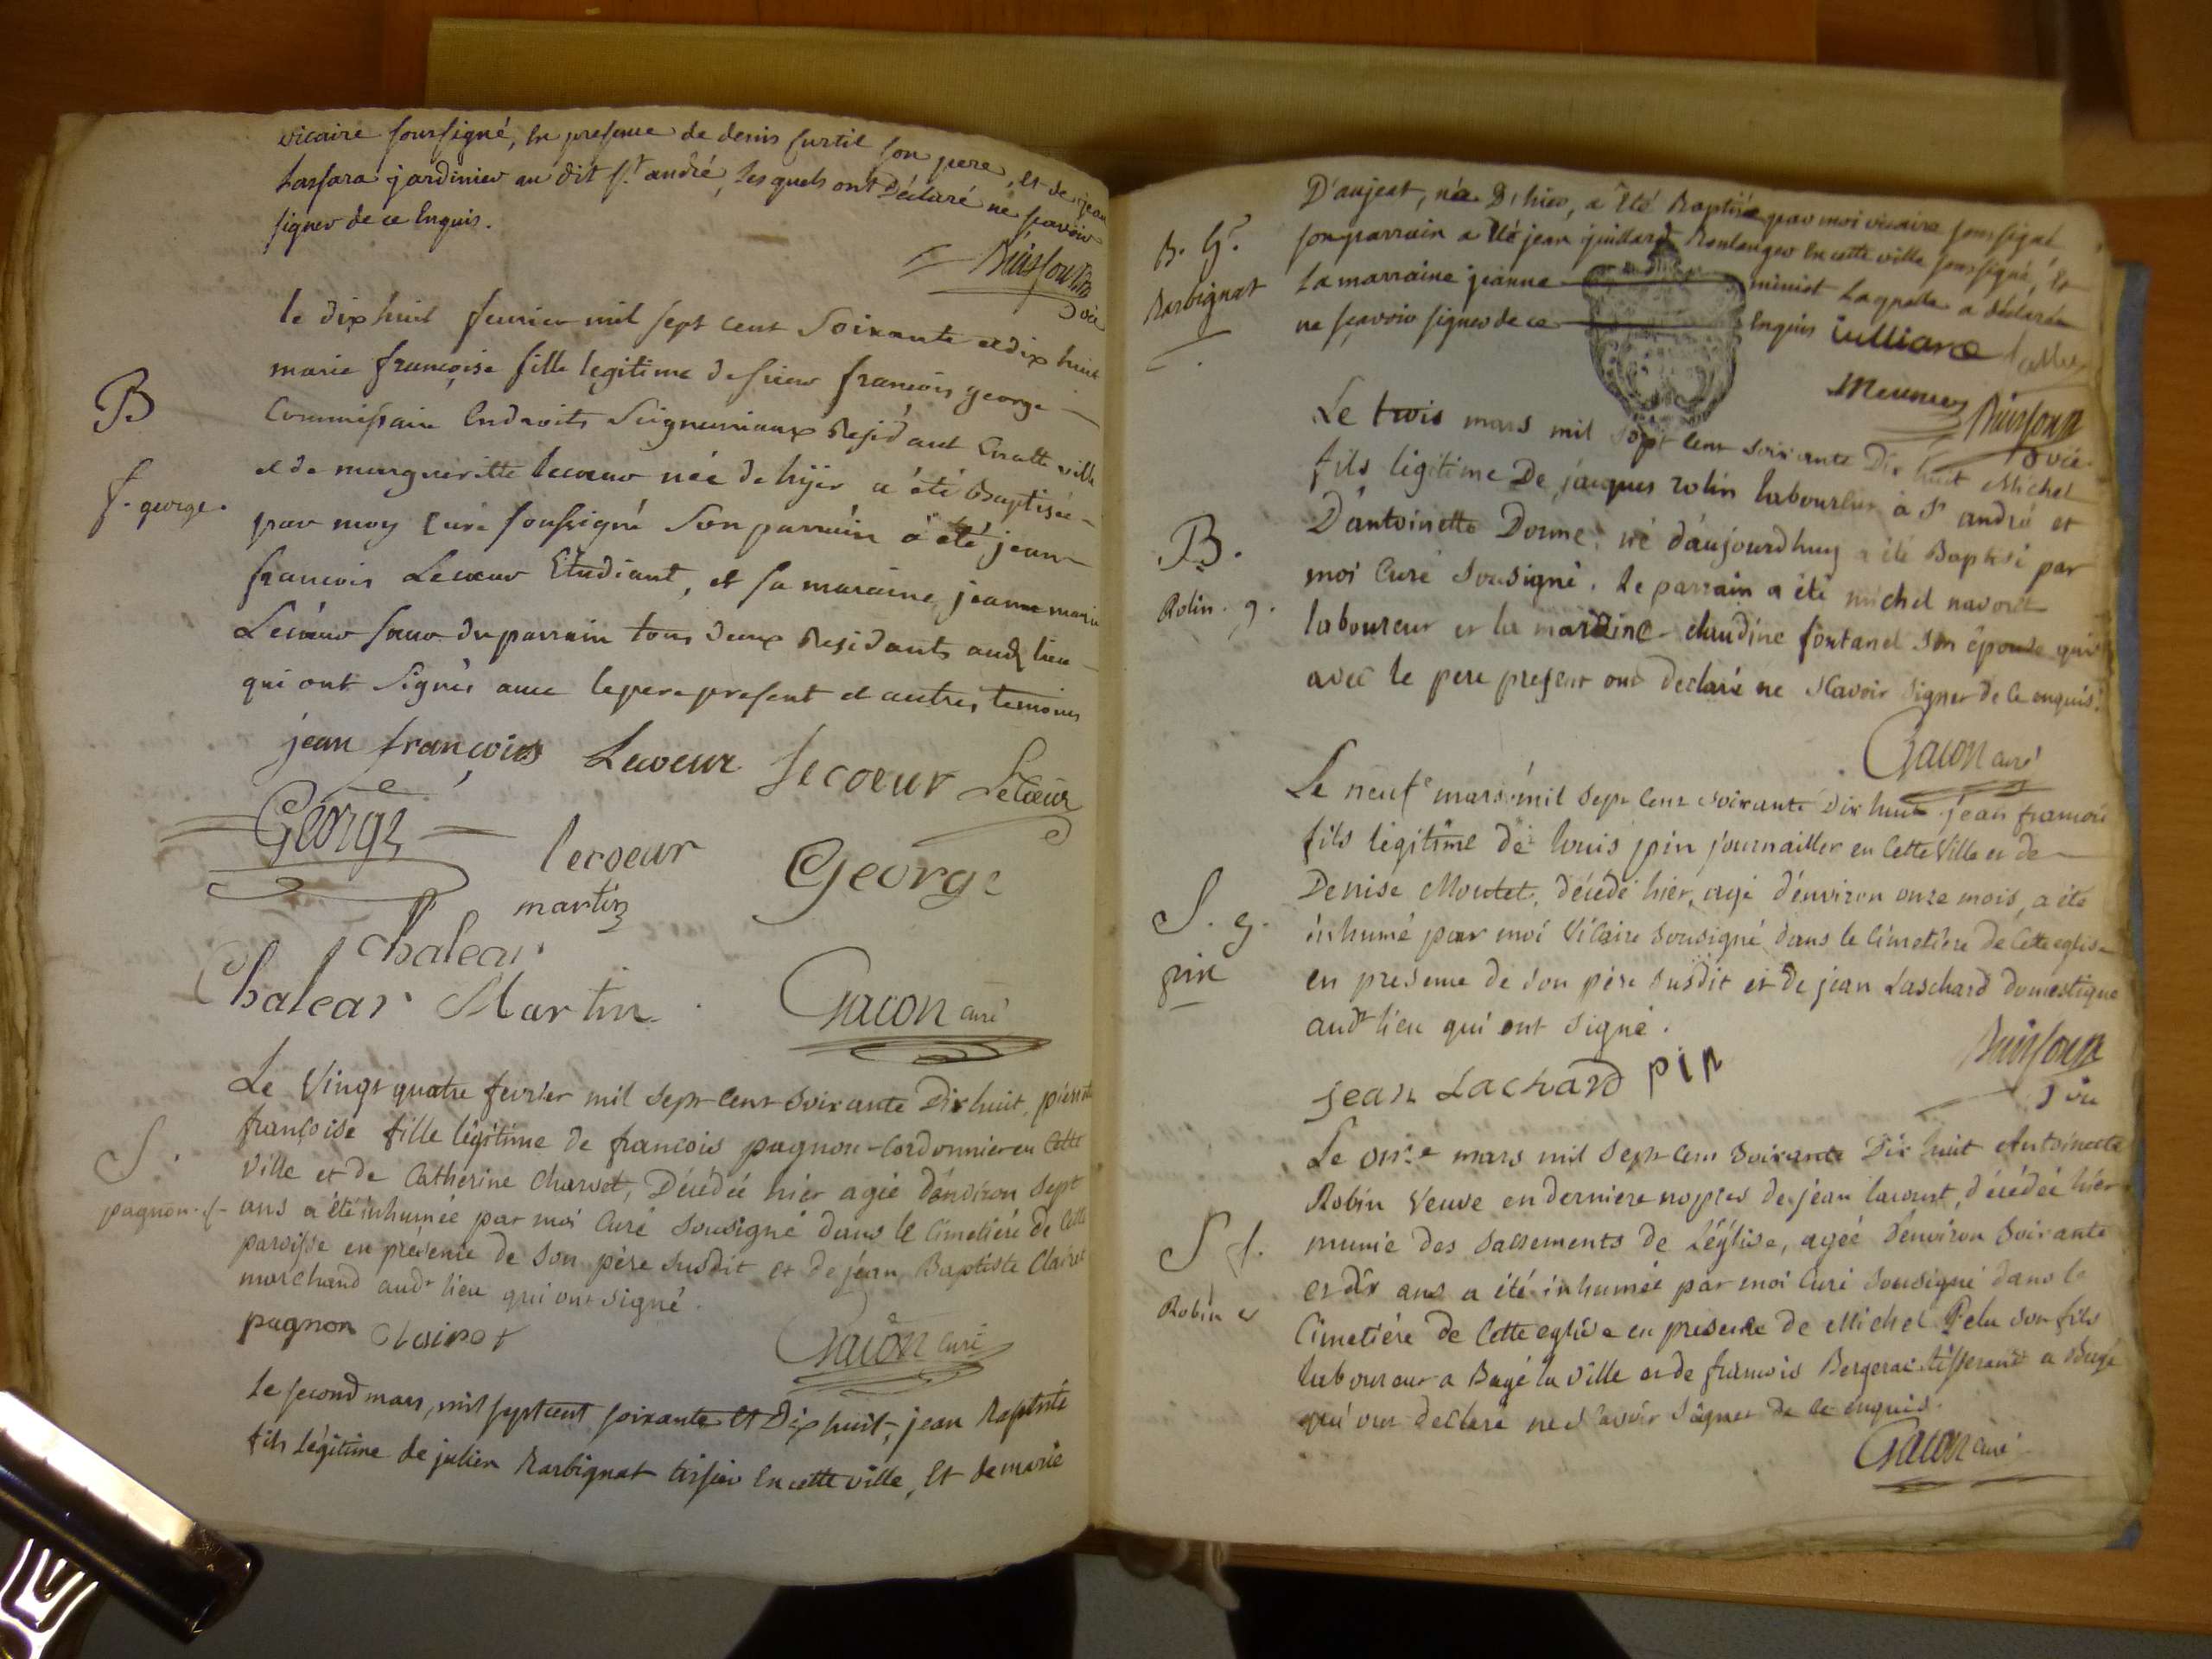 vicaire soussigné, En presence de denis Curtil son pere, Et de jean
Lassara jardinier au dit st. andré, Les quels ont Déclaré ne sçavoir
signer de ce Enquis.
Buisson
vic
le dix huit fevrier mil sept cent Soixante et dix huit
marie françoise fille legitime de sieur françois george
B
Commissaire En droits Seigneuriaux Residant En cette ville
et de marguerite lecoeur née de hyier a été Baptisée
f. george.
par moy Curé soussigné Son parrain a été jean
francois Lecoeur Etudiant, et sa maraine jeanne marie
Lecoeur soeur du parrain tous deux Residants audt lieu
qui ont Signés avec le pere present et autres temoins
jean françois Lecoeur Lecoeur Lecoeur
George
lecoeur George
martin
Chalear
Chalear Martin Gacon curé
Le Vingt quatre fevrier mil Sept Cent Soixante Dix huit, pierrette
françoise fille légitime de francois pagnon Cordonnier en Cette
S.
ville et de Catherine Charvet, Décédée hier agée d'environ Sept
pagnon. f.
ans a été inhumée par moi Curé Sousigné dans le Cimetiére de Cette
paroisse en présence de Son père Susdit et de jean Baptiste Clairet
marchand audt lieu qui ont signé.
pagnon Clairet Gacon Curé
Le second mars, mil sept cent soixante Et Dix huit, jean Baptiste
fils légitime de julien Barbignat tissier En cette ville, Et de marie
D'aujeat, née D'hier, a Eté Baptisé par moi vicaire soussigné
B. g.
son parrain a Eté jean guillard Boulanger En cette ville soussigné, Et
Barbignat
La marraine jeanne miniot Laquelle a déclarée
ne sçavoir signer de ce Enquis
meunier Buisson
vic.
Le trois mars mil Sept Cent Soixante Dix huit Michel
fils légitime De jacques rolin laboureur à St andré et
B.
D'antoinette Donne, né d'aujourdhuy a été Baptisé par
Rolin. g.
moi Curé Sousigné. Le parrain a été michel navoret
laboureur et la maraine claudine fontanel Son épouse qui
avec le pere present ont declaré ne Scavoir Signer de Ce enquis.
Gacon curé
Le neufe mars mil Sept Cent Soixante Dix huit jean francois
fils légitime de louis pin journailler en Cette Ville et de
Denise Moutet, décédé hier, agé d'environ onze mois, a été
S. g.
inhumé par moi Vicaire Sousigné dans le Cimetiére de Cette eglise
pin
en presence de Son père Susdit et de jean Laschard domestique
audt lieu qui ont signé.
Buisson
jean Lachard pin
vic
Le onze mars mil Sept Cent Soixante Dix huit Antoinette
Robin Veuve en derniere noppces de jean lacourt, décédée hier
S f.
munie des Sacrements de L'église, agée d'environ Soixante
et dix ans a été inhumée par moi Curé Sousigné dans le
Robin
Cimetiére de Cette eglise en presence de Michel Pelu Son fils
laboureur a Bagé la Ville et de francois Bergerac tisserand a Bagé
qui ont declaré ne Scavoir Signer de ce enquis.
Gacon Curé